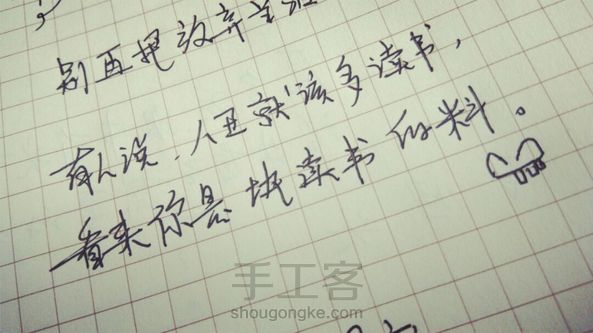 别再把放弃当
有人说,人丑就该多读书,
看来你是块读书的料。
手工客
shougongke.com